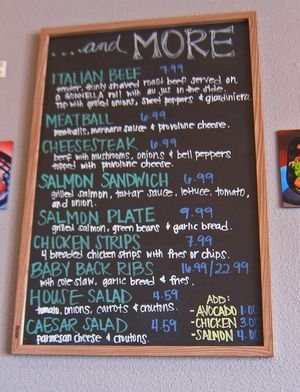 ....and MORE
ITALIAN BEEF 7.99
tender, thinly shaved roast beef served on
a GONNELLA roll with au jus on the side.
Top with grilled onions, sweet peppers & giardiniera
MEATBALL 6.99
meatballs, marinara sauce & provolone cheese.
CHEESESTEAK 6.99
beef with mushrooms, onions & bell peppers
topped with provolone cheese.
SALMON SANDWICH 6.99
grilled salmon, tartar sauce, lettuce, tomato,
and onion.
SALMON PLATE 9.99
grilled salmon, green beans & garlic bread.
CHICKEN STRIPS 7.99
4 breaded chicken strips with fries or chips.
BABY BACK RIBS 16.99/22.99
with cole slaw, garlic bread & fries.
HOUSE SALAD 4.59
tomato, onions, carrots & croutons.
CAESAR SALAD 4.59
parmesan cheese & croutons.
ADD:
-AVOCADO 1.00
-CHICKEN 3.00
-SALMON 4.00